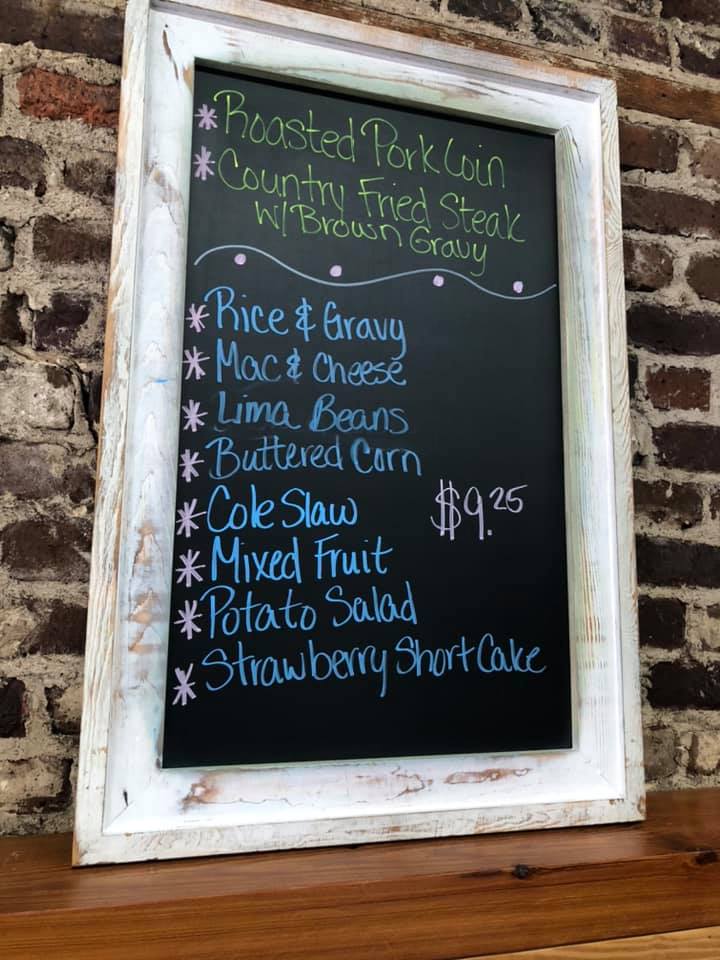 * Roasted Pork Loin
* Country Fried Steak
W/ Brown Gravy
* Rice & Gravy
* Mac & Cheese
* Lima Beans
* Buttered Corn
* Cole Slaw
$9.25
* Mixed Fruit
* Potato Salad
* Strawberry Short Cake